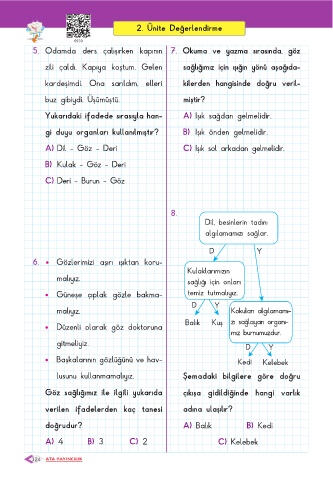 2. Ünite Değerlendirme
5. Odamda ders çalışırken kapının
zili çaldı. Kapıya koştum. Gelen
kardeşimdi. Ona sarıldım, elleri
buz gibiydi. Üşümüştü.
Yukarıdaki ifadede sırasıyla han-
gi duyu organları kullanılmıştır?
A) Dil - Göz - Deri
B) Kulak - Göz - Deri
C) Deri - Burun - Göz
6. • Gözlerimizi aşırı ışıktan koru-
malıyız.
• Güneşe çıplak gözle bakma-
malıyız.
• Düzenli olarak göz doktoruna
gitmeliyiz.
• Başkalarının gözlüğünü ve hav-
lusunu kullanmamalıyız.
Göz sağlığımız ile ilgili yukarıda
verilen ifadelerden kaç tanesi
doğrudur?
A) 4 B) 3 C) 2
7. Okuma ve yazma sırasında, göz
sağlığımız için ışığın yönü aşağıda-
kilerden hangisinde doğru veril-
miştir?
A) Işık sağdan gelmelidir.
B) Işık önden gelmelidir.
C) Işık sol arkadan gelmelidir.
8.
Dil, besinlerin tadını
algılamamızı sağlar.
D Y
Kulaklarımızın
sağlığı için onları
temiz tutmalıyız.
D Y
Balık Kuş
Kokuları algılamamı-
zı sağlayan organı-
mız burnumuzdur.
D Y
Kedi Kelebek
Şemadaki bilgilere göre doğru
çıkışa gidildiğinde hangi varlık
adına ulaşılır?
A) Balık B) Kedi
C) Kelebek
24 ATA YAYINCILIK